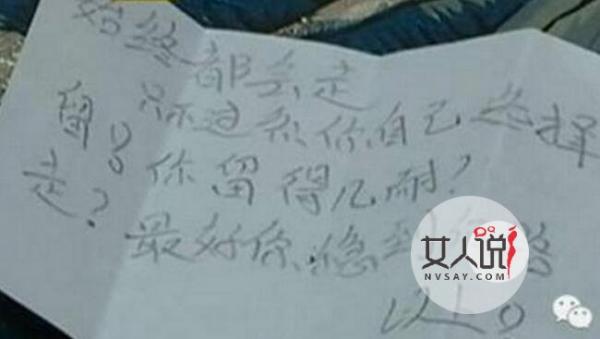 始终都会走
只不过系你自己选择
留?你留得几耐?
走?
最好你
以上。
女人说
NVSAY.COM